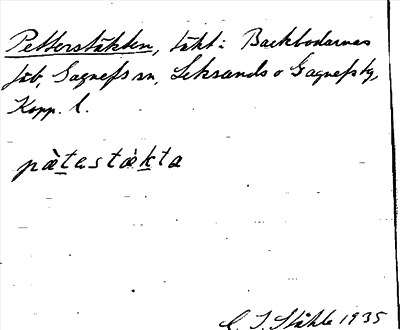 Petterstäkten, täkt i Backbodarnas
fäb, Gagnefs sn, Leksands o Gagnefs tg,
Kopp. l.
pàtastàkta
C. I. Ståhle 1935